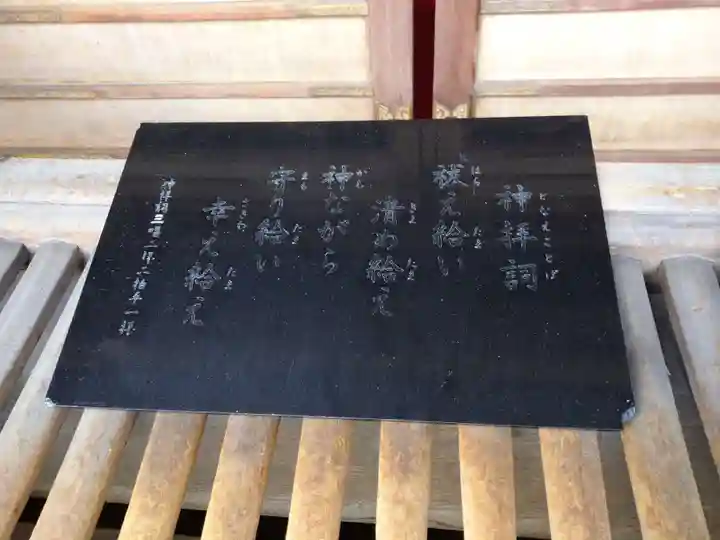 神拝詞
となえことば
祓え給い
はら たま
清め給え
きよ たま
神ながら
かむ
守り給い
まも たま
幸え給え
さきわ たま
神拝詞三唱二拝二拍手一拝